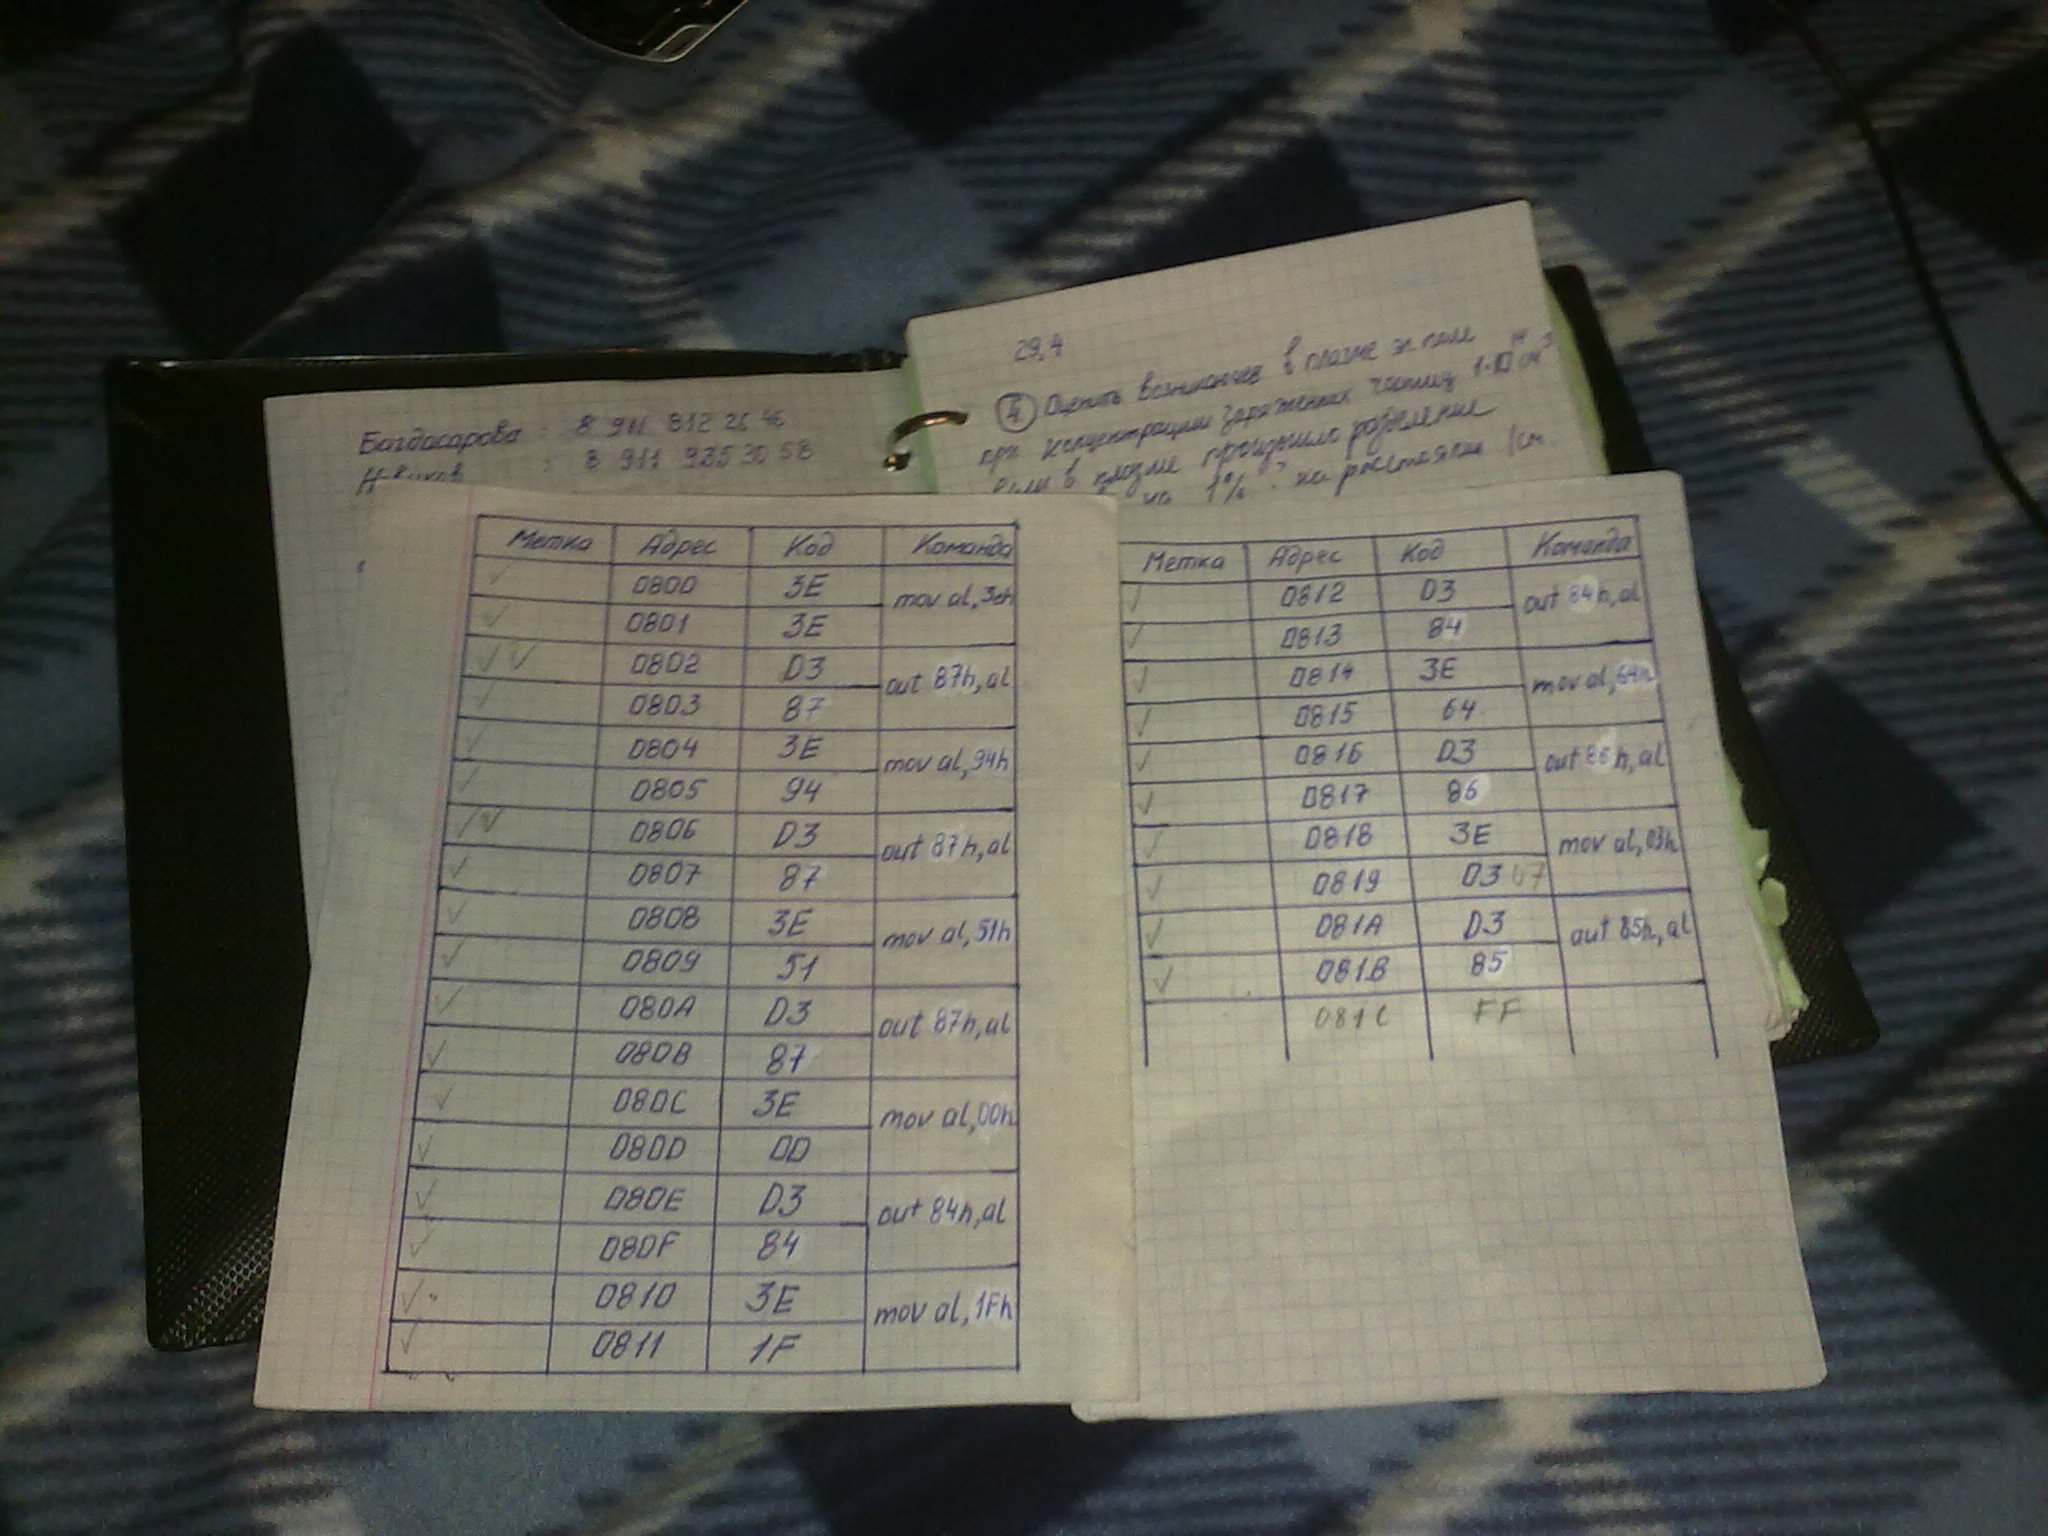 29.4
④ Оценить возникающее в плазме эл. поле
при концентрации заряженных частиц
если в плазме произошло разделение
на 1% на расстояние 1 см.
Багдасарова : 8 911 812 26 46
: 8 911 935 30 58
Метка Адрес Код Команда
0800 3E mov al, 3eh
0801 3E
0802 D3 out 87h, al
0803 87
0804 3E mov al, 94h
0805 94
0806 D3 out 87h, al
0807 87
0808 3E mov al, 51h
0809 51
080A D3 out 87h, al
080B 87
080C 3E mov al, 00h
080D 00
080E D3 out 84h, al
080F 84
0810 3E mov al, 1Fh
0811 1F
Метка Адрес Код Команда
0812 D3 out 84h, al
0813 84
0814 3E mov al, 64h
0815 64
0816 D3 out 86h, al
0817 86
0818 3E mov al, 03h
0819 03 07
081A D3 out 85h, al
081B 85
081C FF